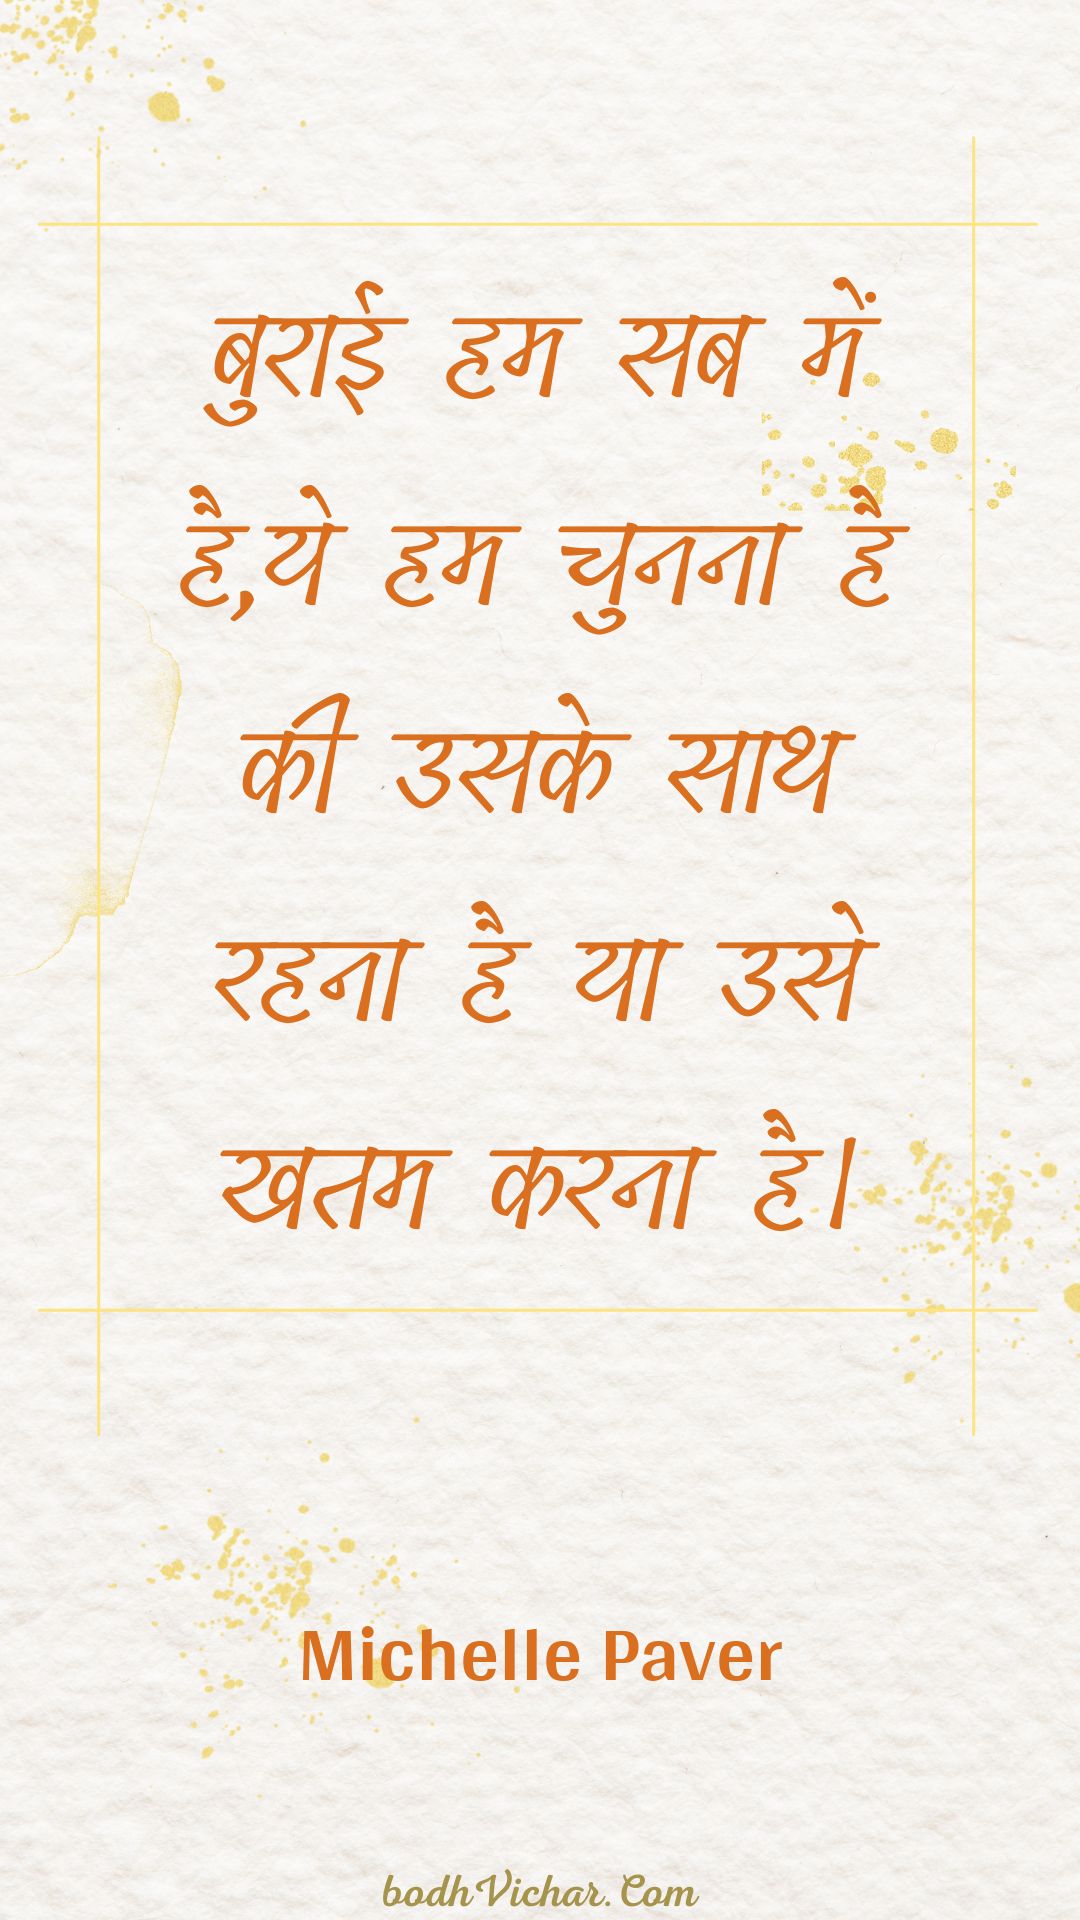 बुराई हम सब में
है,ये हम चुनना है
की उसके साथ
रहना है या उसे
खतम करना है।
Michelle Paver
bodhVichar.Com